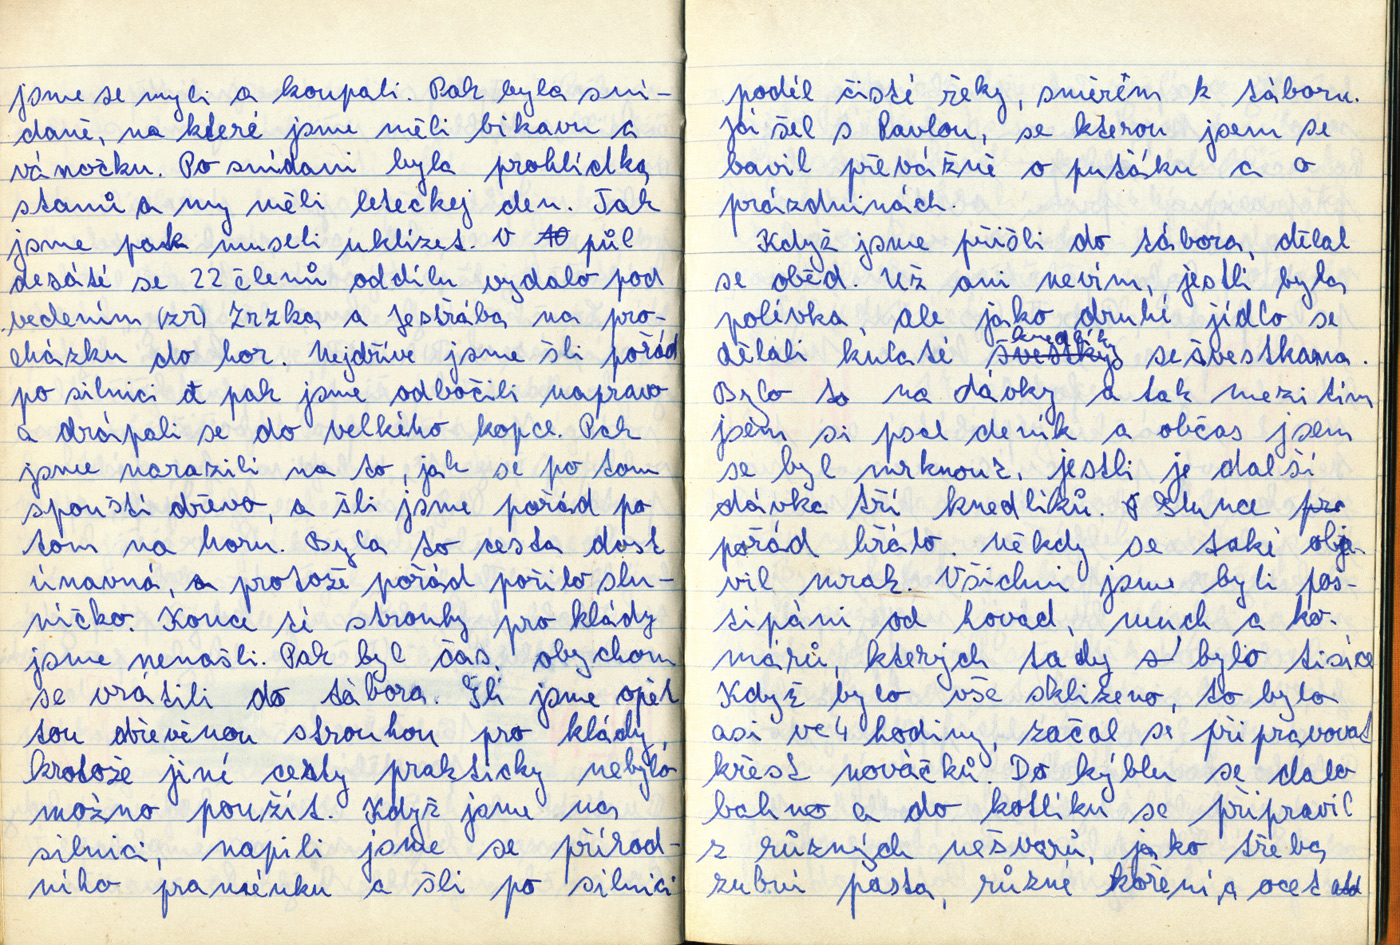 jsme se myli a koupali. Pak byla sní-
daně, na které jsme měli bikavu a
vánočku. Po snídani byla prohlídka
stanů a my měli leteckej den. Tak
jsme pak museli uklízet. V 10 půl
desáté se 22 členů oddílu vydalo pod
vedením (zř) Zrzka a Jestřába na pro-
cházku do hor. Nejdříve jsme šli pořád
po silnici a pak jsme odbočili napravo
a drápali se do velkého kopce. Pak
jsme narazili na to, jak se po tom
spouští dřevo, a šli jsme pořád po
tom na horu. Byla to cesta dost
únavná, a protože pořád pořilo slu-
níčko. Konec té strouhy pro klády
jsme nenašli. Pak byl čas, abychom
se vrátili do tábora. Šli jsme opět
tou dřevěnou strouhou pro klády,
protože jiné cesty prakticky nebylo
možno použít. Když jsme na
silnici, napili jsme se přírod-
ního praménku a šli po silnici
podél čisté řeky, směrěm k táboru.
Já šel s Pavlou, se kterou jsem se
bavil převážně o puťáku a o
prázdninách.
Když jsme přišli do tábora, dělal
se oběd. Už ani nevím, jestli byla
polévka, ale jako druhé jídlo se
dělali kulaté švestky knedlíky se švestkama.
Bylo to na dávky a tak mezitím
jsem si psal deník a občas jsem
se byl mrknout, jestli je další
dávka tří knedlíků. Slunce pra
pořád hřálo. Někdy se také obje-
vil mrak. Všichni jsme byli poš-
típáni od hovad, much a ko-
márů, kterých tady bylo tisíce
Když bylo vše sklizeno, to bylo
asi ve 4 hodiny, začal se připravovat
křest nováčků. Do kýblu se dalo
bahno a do kotlíku se připravil
z různých nešvarů, jako třeba
zubní pasta, různé koření, a ocet atd